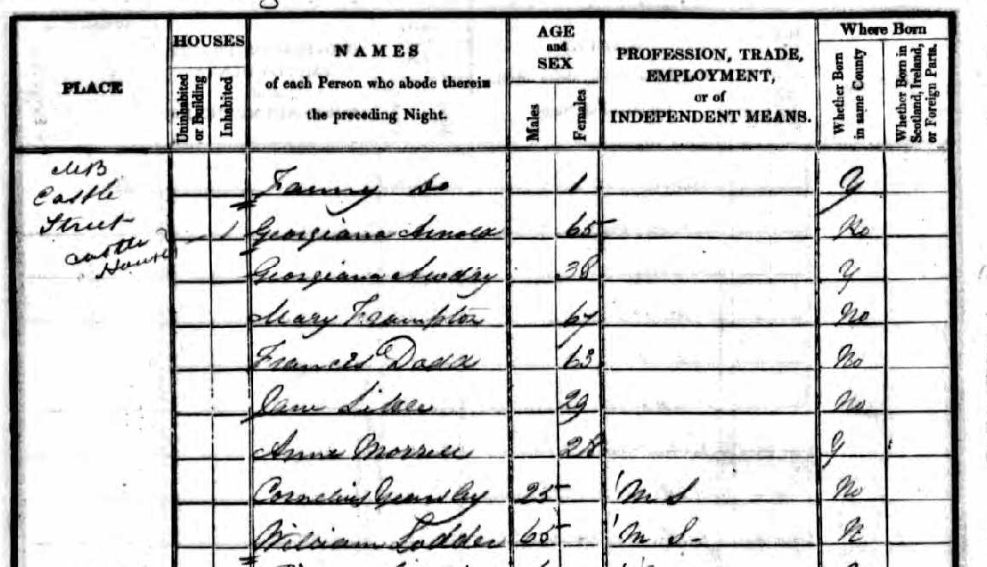 PLACE
HOUSES
Uninhabited or Building
Inhabited
NAMES
of each Person who abode therein
the preceding Night.
AGE
and
SEX
Males
Females
PROFESSION, TRADE,
EMPLOYMENT,
or of
INDEPENDENT MEANS.
Where Born
Whether Born in same County
Whether Born in Scotland, Ireland, or Foreign Parts.
Castle
Street
Castle
House
Fanny Do 1 Y
1 Georgiana Arnold 65 No
Georgiana Awdry 38 Y
Mary Frampton 67 No
Frances Dodd 63 No
Jane 29 No
Anne Morrell 28 Y
Cornelius 25 M S No
William Lodder 65 M S N